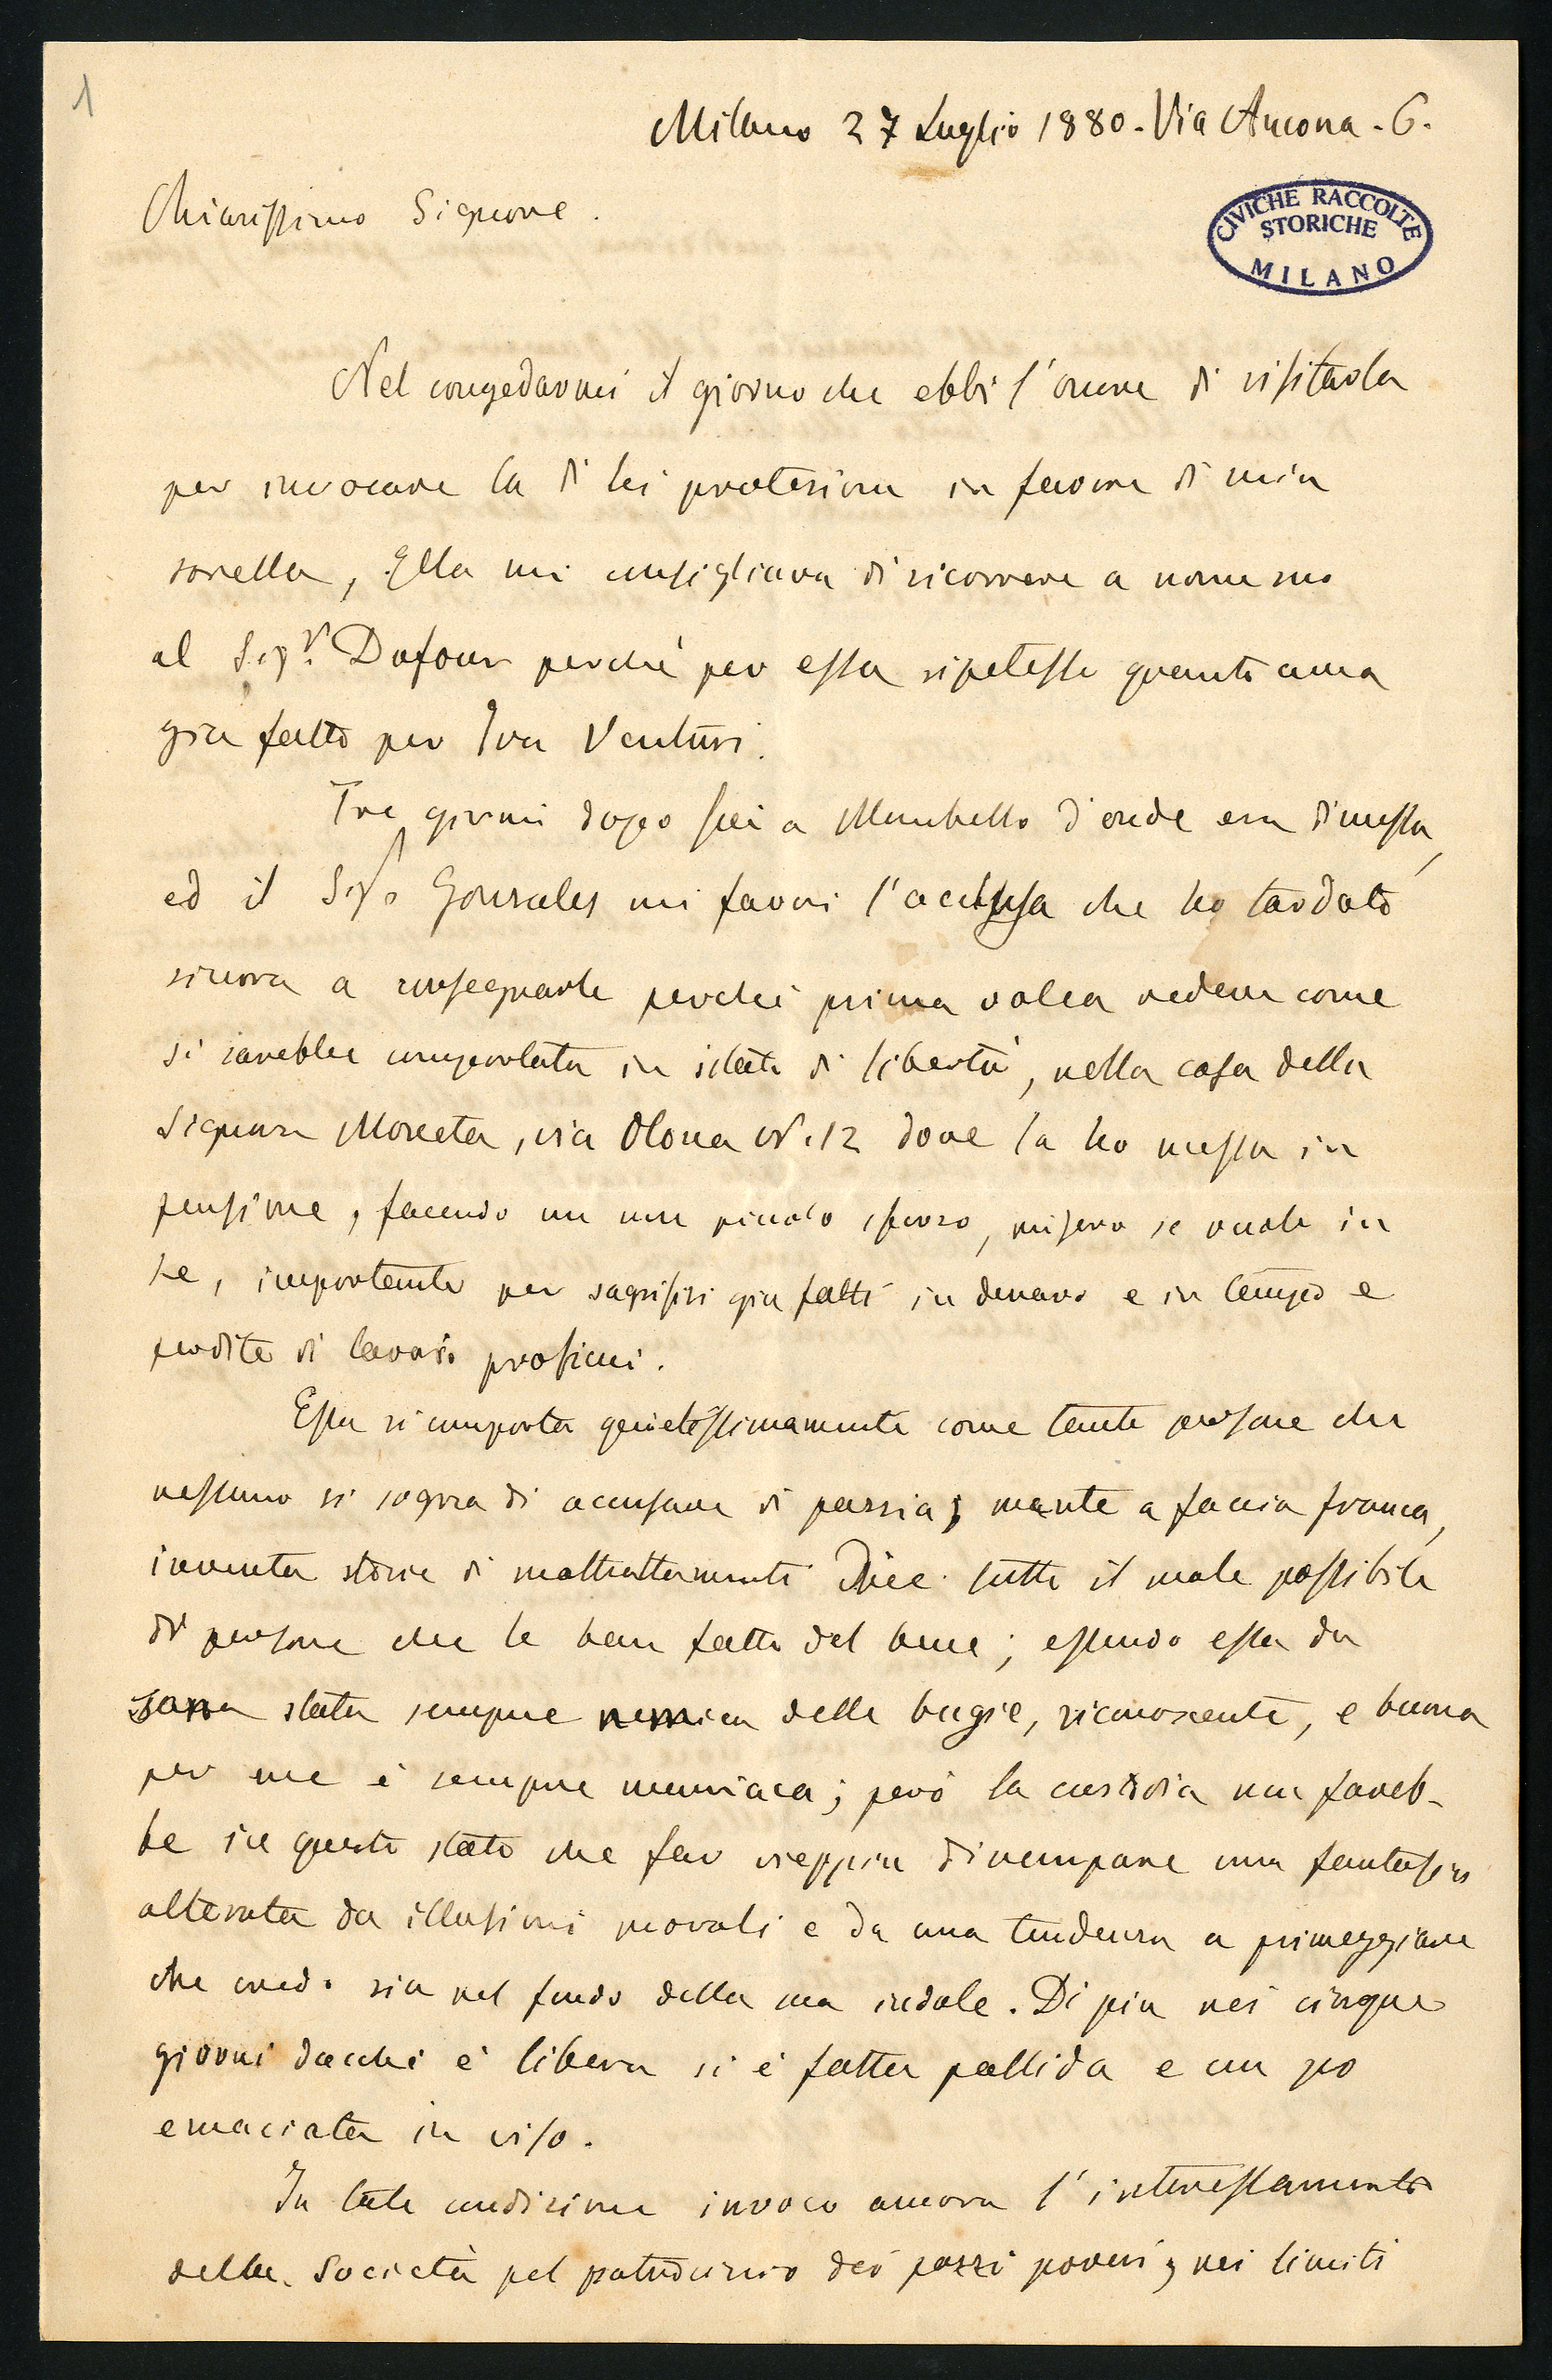 1
Milano 27 Luglio 1880. Via Ancona. 6.
Chiarissimo Signore.
CIVICHE RACCOLTE
STORICHE
MILANO
Nel congedarmi il giorno che ebbi l'onore di visitarla
per invocare la di lei protezione in favore di mia
sorella, Ella mi consigliava di ricorrere a nome suo
al Sigr. Dufour perchè per essa ripetesse quanto avea
già fatto per Iva Venturi.
Tre giorni dopo fui a Mombello d'onde era dimessa,
ed il Sigr Gonzales mi favorì l'acclusa che ho tardato
sinora a consegnarle perchè prima volea vedere come
si sarebbe comportata in istato di libertà, nella casa della
Signora Moneta, via Olona N. 12 dove la ho messa in
pensione, facendo un non piccolo sforzo, misero se vuole in
se, importante per sagrifizi già fatti in denaro e in tempo e
perdita di lavoro proficui.
Essa si comporta quietissimamente come tante persone che
nessuno si sogna di accusare di pazzia; mente a faccia franca,
inventa storie di maltrattamenti Dice tutto il male possibile
di persone che le han fatto del bene; essendo essa da
sana stata sempre nemica delle bugie, riconoscente, e buona
per me è sempre maniaca; però la custodia non fareb-
be in questo stato che far vieppiù divampare una fantasia
alterata da illusioni morali e da una tendenza a primeggiare
che credo sia nel fondo della sua indole. Di più nei cinque
giorni dacchè è libera si è fatta pallida e un po
emaciata in viso.
In tale condizione invoco ancora l'interessamento
della Società pel patrocinio dei pazzi poveri, nei limiti